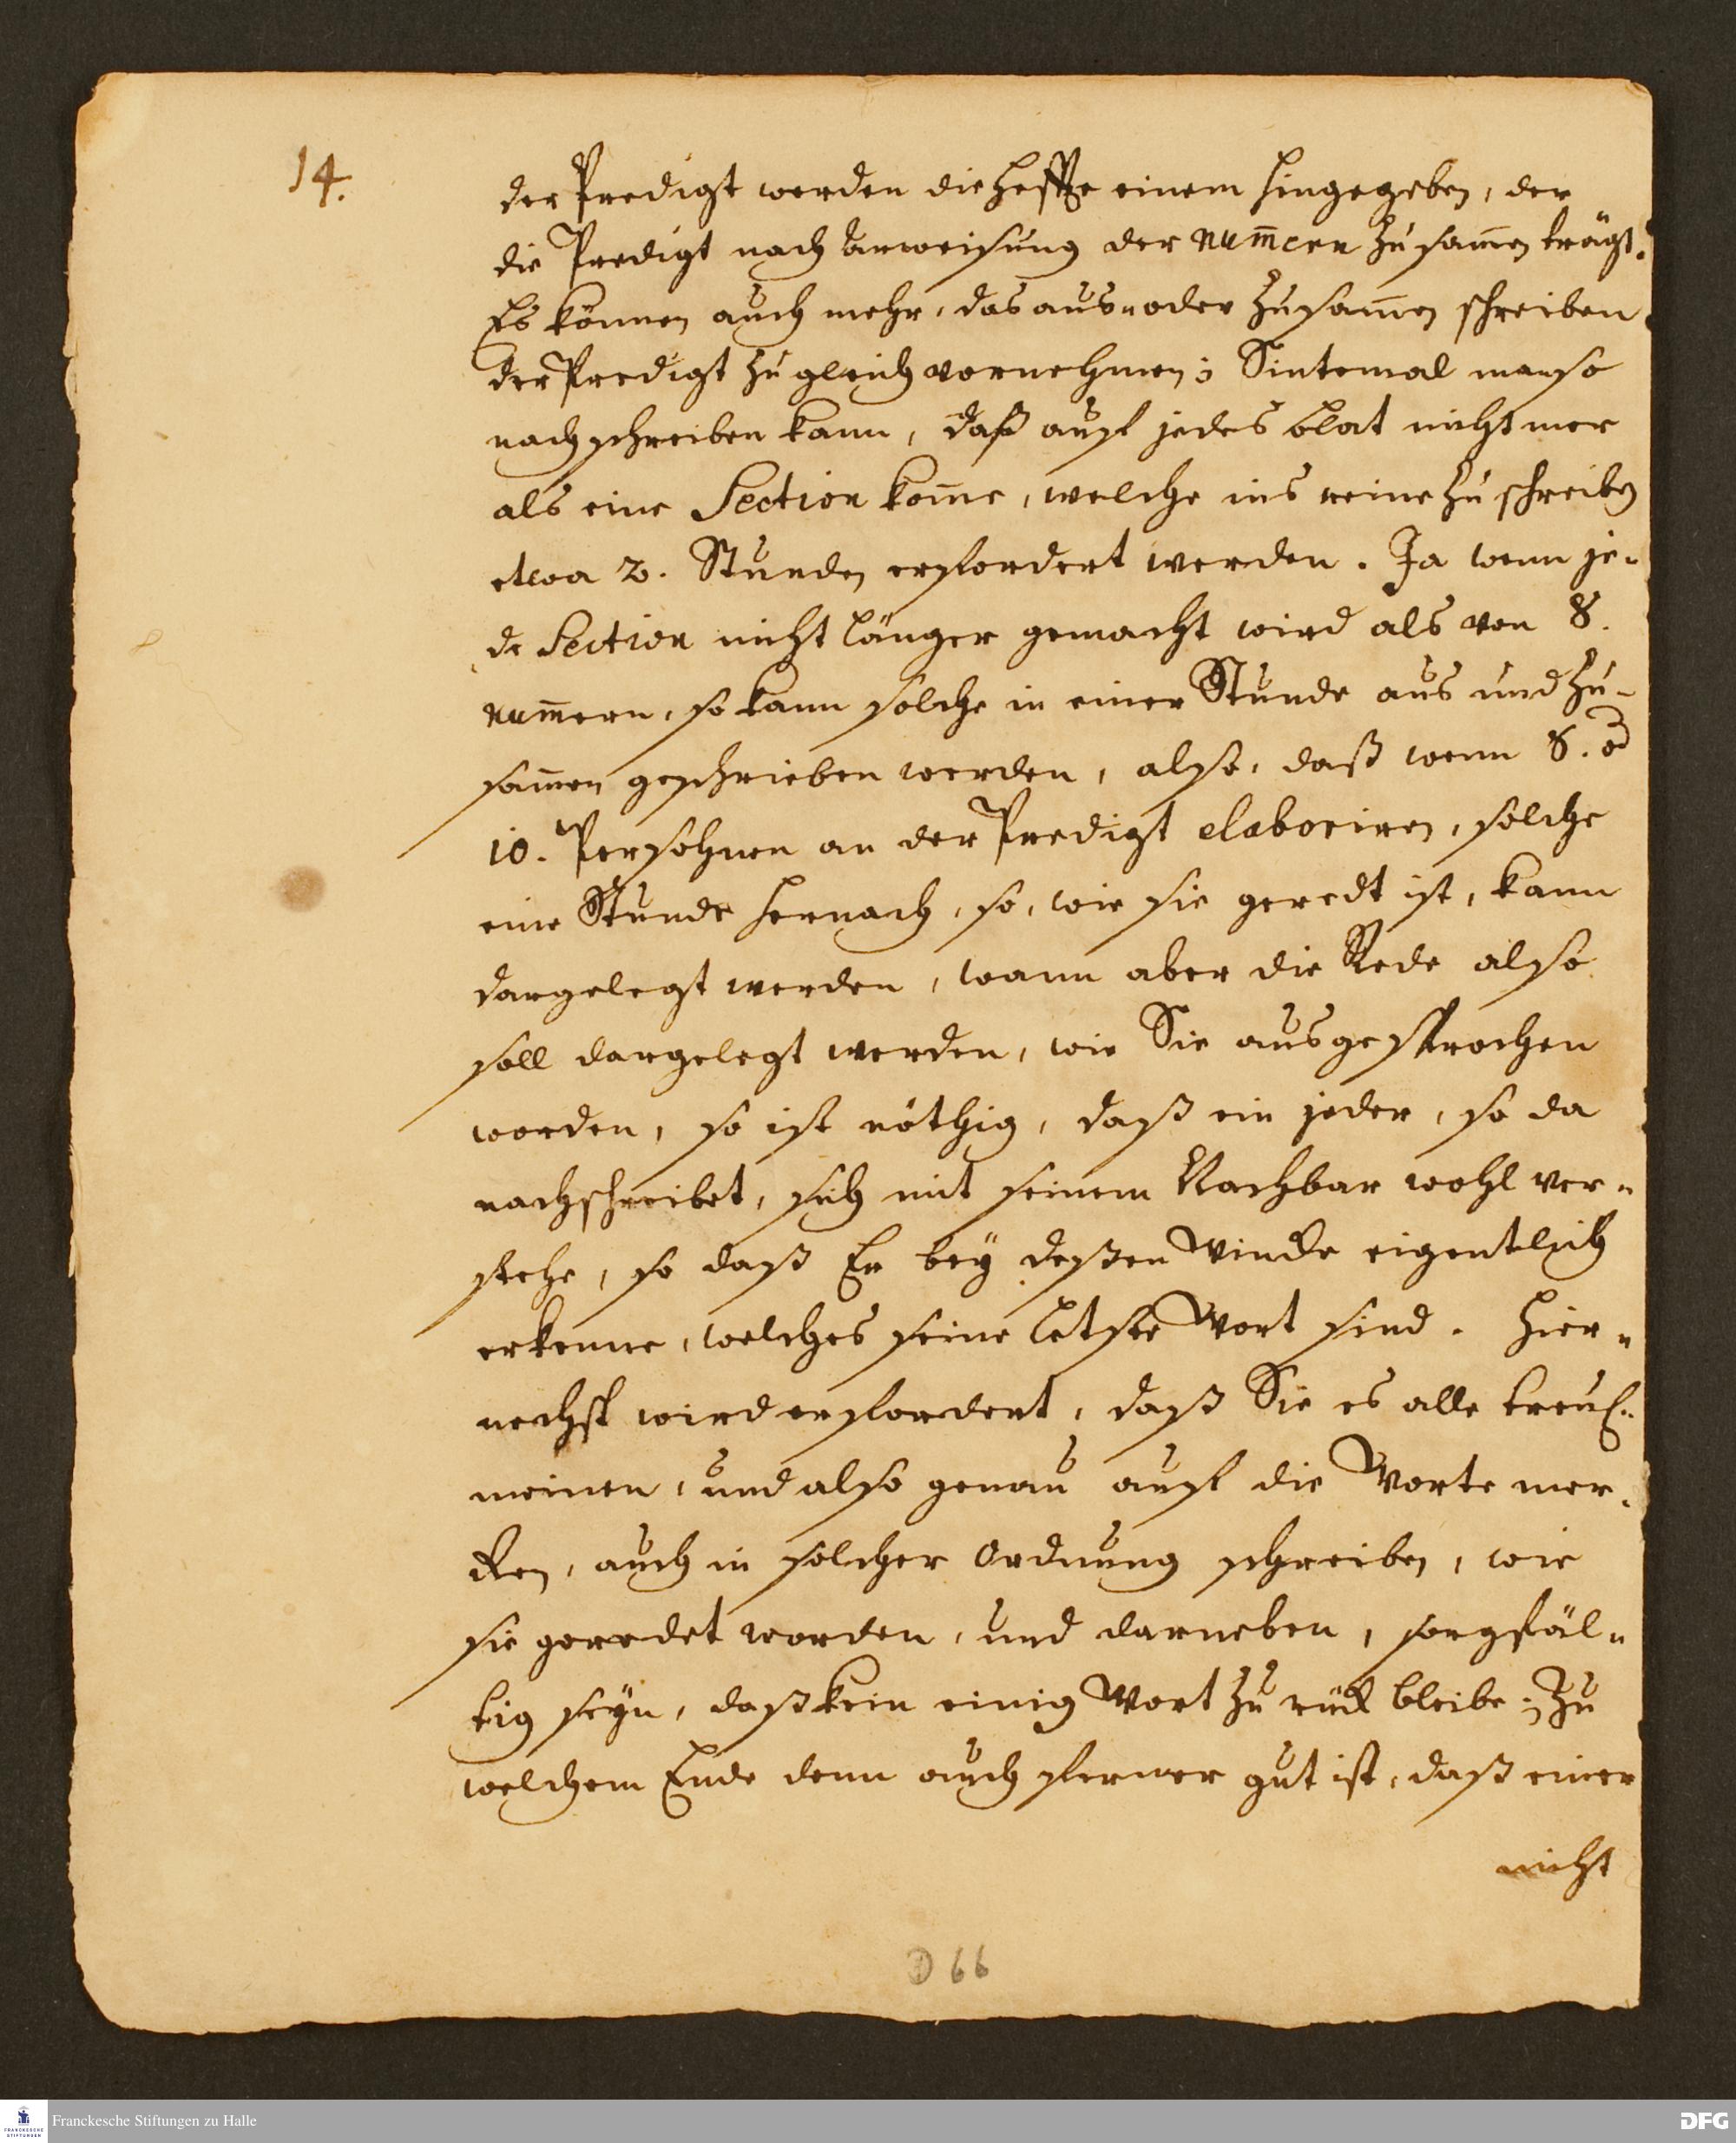 14.
der Predigt werden die Heffte einem hingegeben, der
die Predigt nach anweisung der num̄ern zusam̄en trägt.
Es können auch mehr, das aus- oder zusam̄en schreiben
der Predigt zugleich vornehmen; Sintemal man so
nachschreiben kann, daß auff jedes blat nicht mer
als eine Section kom̄e, welche ins reine zu schreiben
etwa 2. Stunden erfordert werden. Ja wenn je-
de Section nicht länger gemacht wird als von 8.
num̄ern, so kann solche in einer Stunde aus und zu-
sam̄en geschrieben werden, also, daß wenn 8. od
10. Persohnen an der Predigt elaboriren, solche
eine Stunde hernach, so, wie sie geredt ist, kann
dargelegt werden, wann aber die Rede also
soll dargelegt werden, wie Sie ausgesprochen
worden, so ist nöthig, daß ein jeder, so da
nachschreibet, sich mit seinem Nachbar wohl ver-
stehe, so daß Er bey deßen Wincke eigentlich
erkenne, welches seine letste Wort sind. Hier-
nechst wird erfordert, daß Sie es alle treul.
meinen, und also genau auff die Worte mer-
cken, auch in solcher Ordnung schreiben, wie
sie geredet worden, und darneben, sorgfäl-
tig seyn, daß kein einig Wort zu rück bleibe; Zu
welchem Ende denn auch ferner gut ist, daß einer
nicht
D 66
Franckesche Stiftungen zu Halle
FRANCKESCHE STIFTUNGEN
DFG